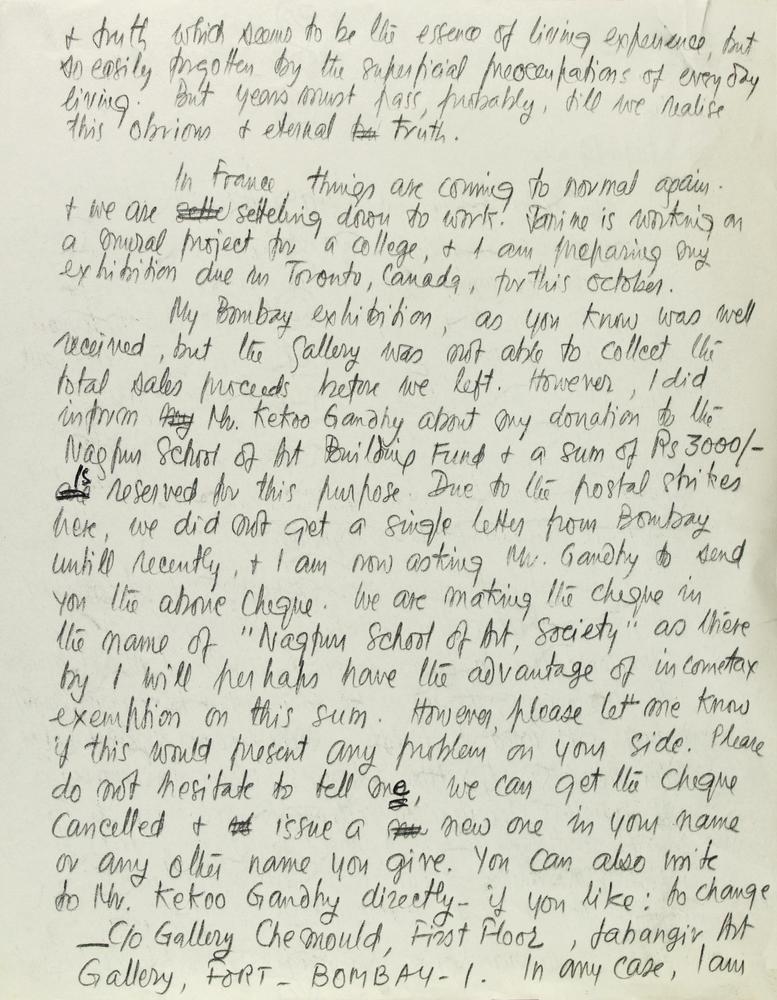 & truth which seems to be the essence of living experience, but
so easily forgotten by the superficial preoccupations of everyday
living. But years must pass, probably, till we realise
this obvious & eternal truth.
In France, things are coming to normal again.
& we are setteling down to work. Janine is working on
a mural project for a college, & I am preparing my
exhibition due in Toronto, Canada, for this october.
My Bombay exhibition, as you know was well
received, but the Gallery was not able to collect the
total sales proceeds before we left. However, I did
inform Mr. Kekoo Gandhy about my donation to the
Nagpur School of Art Building Fund & a sum of Rs 3000/-
is reserved for this purpose. Due to the postal strikes
here, we did not get a single letter from Bombay
untill recently, & I am now asking Mr. Gandhy to send
you the above cheque. We are making the cheque in
the name of "Nagpur School of Art, Society" as there
by I will perhaps have the advantage of incometax
exemption on this sum. However, please let me know
if this would present any problem on your side. Please
do not hesitate to tell me, we can get the cheque
cancelled & issue a new one in your name
or any other name you give. You can also write
to Mr. Kekoo Gandhy directly - if you like: to change
_C/o Gallery Chemould, First Floor, Jahangir Art
Gallery, FORT - BOMBAY - 1. In any case, I am